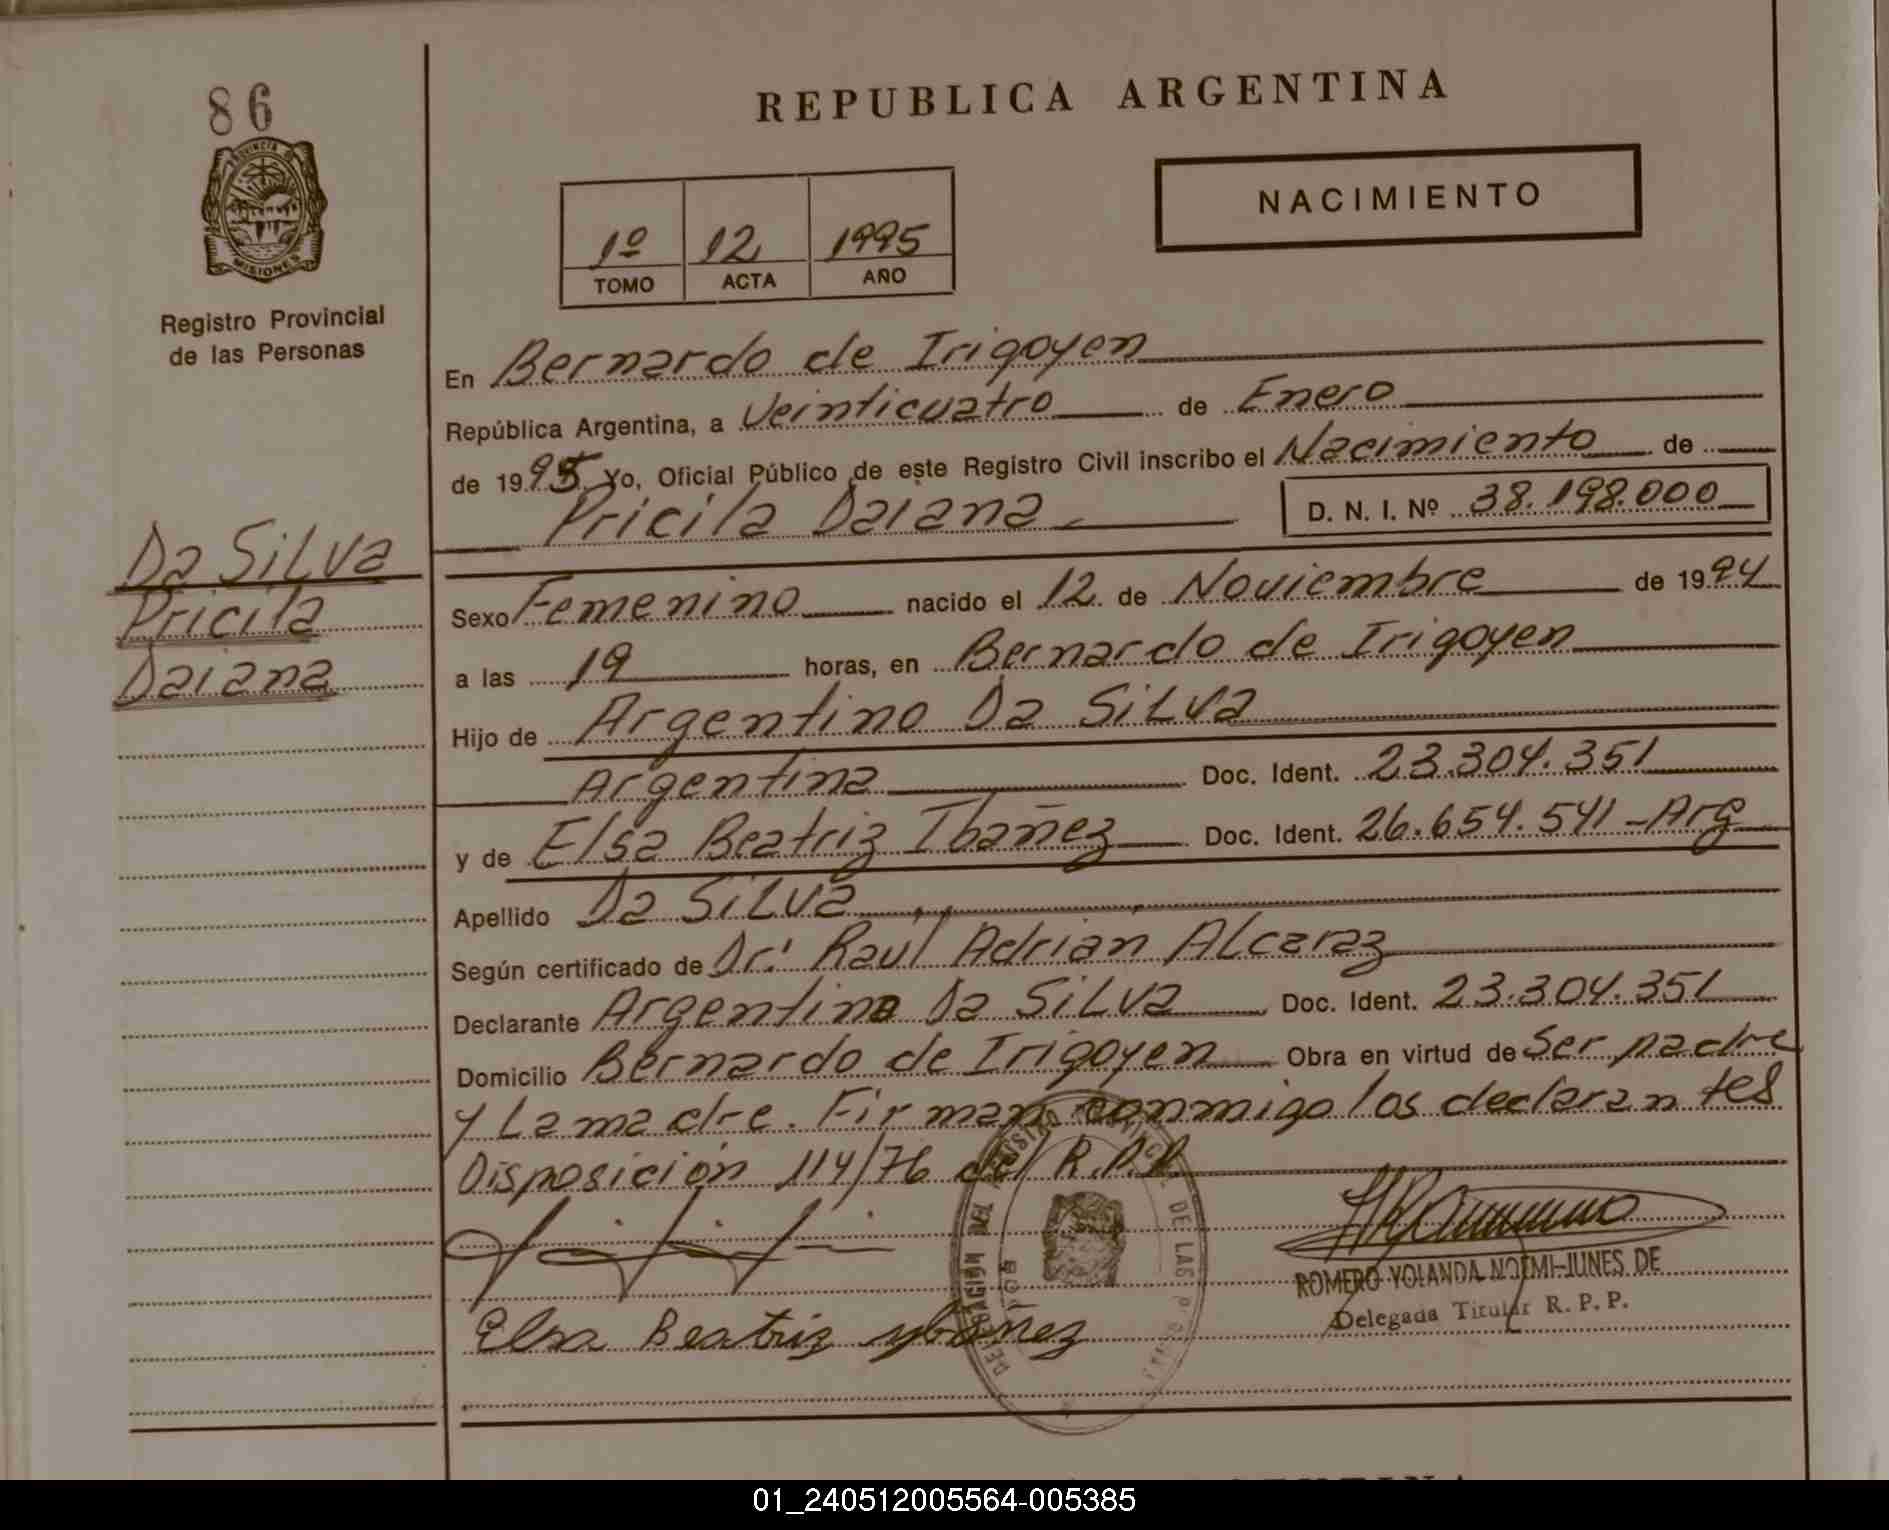 86
PROVINCIA DE
MISIONES
Registro Provincial
de las Personas
REPUBLICA ARGENTINA
NACIMIENTO
1º 12 1995
TOMO ACTA AÑO
En Bernardo de Irigoyen
República Argentina, a Veinticuatro de Enero
de 1995. Yo, Oficial Público de este Registro Civil inscribo el Nacimiento de
Pricila Daiana D. N. I. Nº 38.198.000
Da Silva
Pricila
Daiana
Sexo Femenino nacido el 12 de Noviembre de 1994
a las 19 horas, en Bernardo de Irigoyen
Hijo de Argentino Da Silva
Argentina Doc. Ident. 23.304.351
y de Elsa Beatriz Ibañez Doc. Ident. 26.654.541 - Arg
Apellido Da Silva
Según certificado de Dr. Raúl Adrián Alcaraz
Declarante Argentino Da Silva Doc. Ident. 23.304.351
Domicilio Bernardo de Irigoyen Obra en virtud de Ser padre
y La madre. Firman conmigo los declarantes
Disposición 114/76 del R.P.P.
ROMERO YOLANDA NOEMI-IUNES DE
Delegada Titular R. P. P.
Elsa Beatriz ybañez
DE LAS
01_240512005564-005385